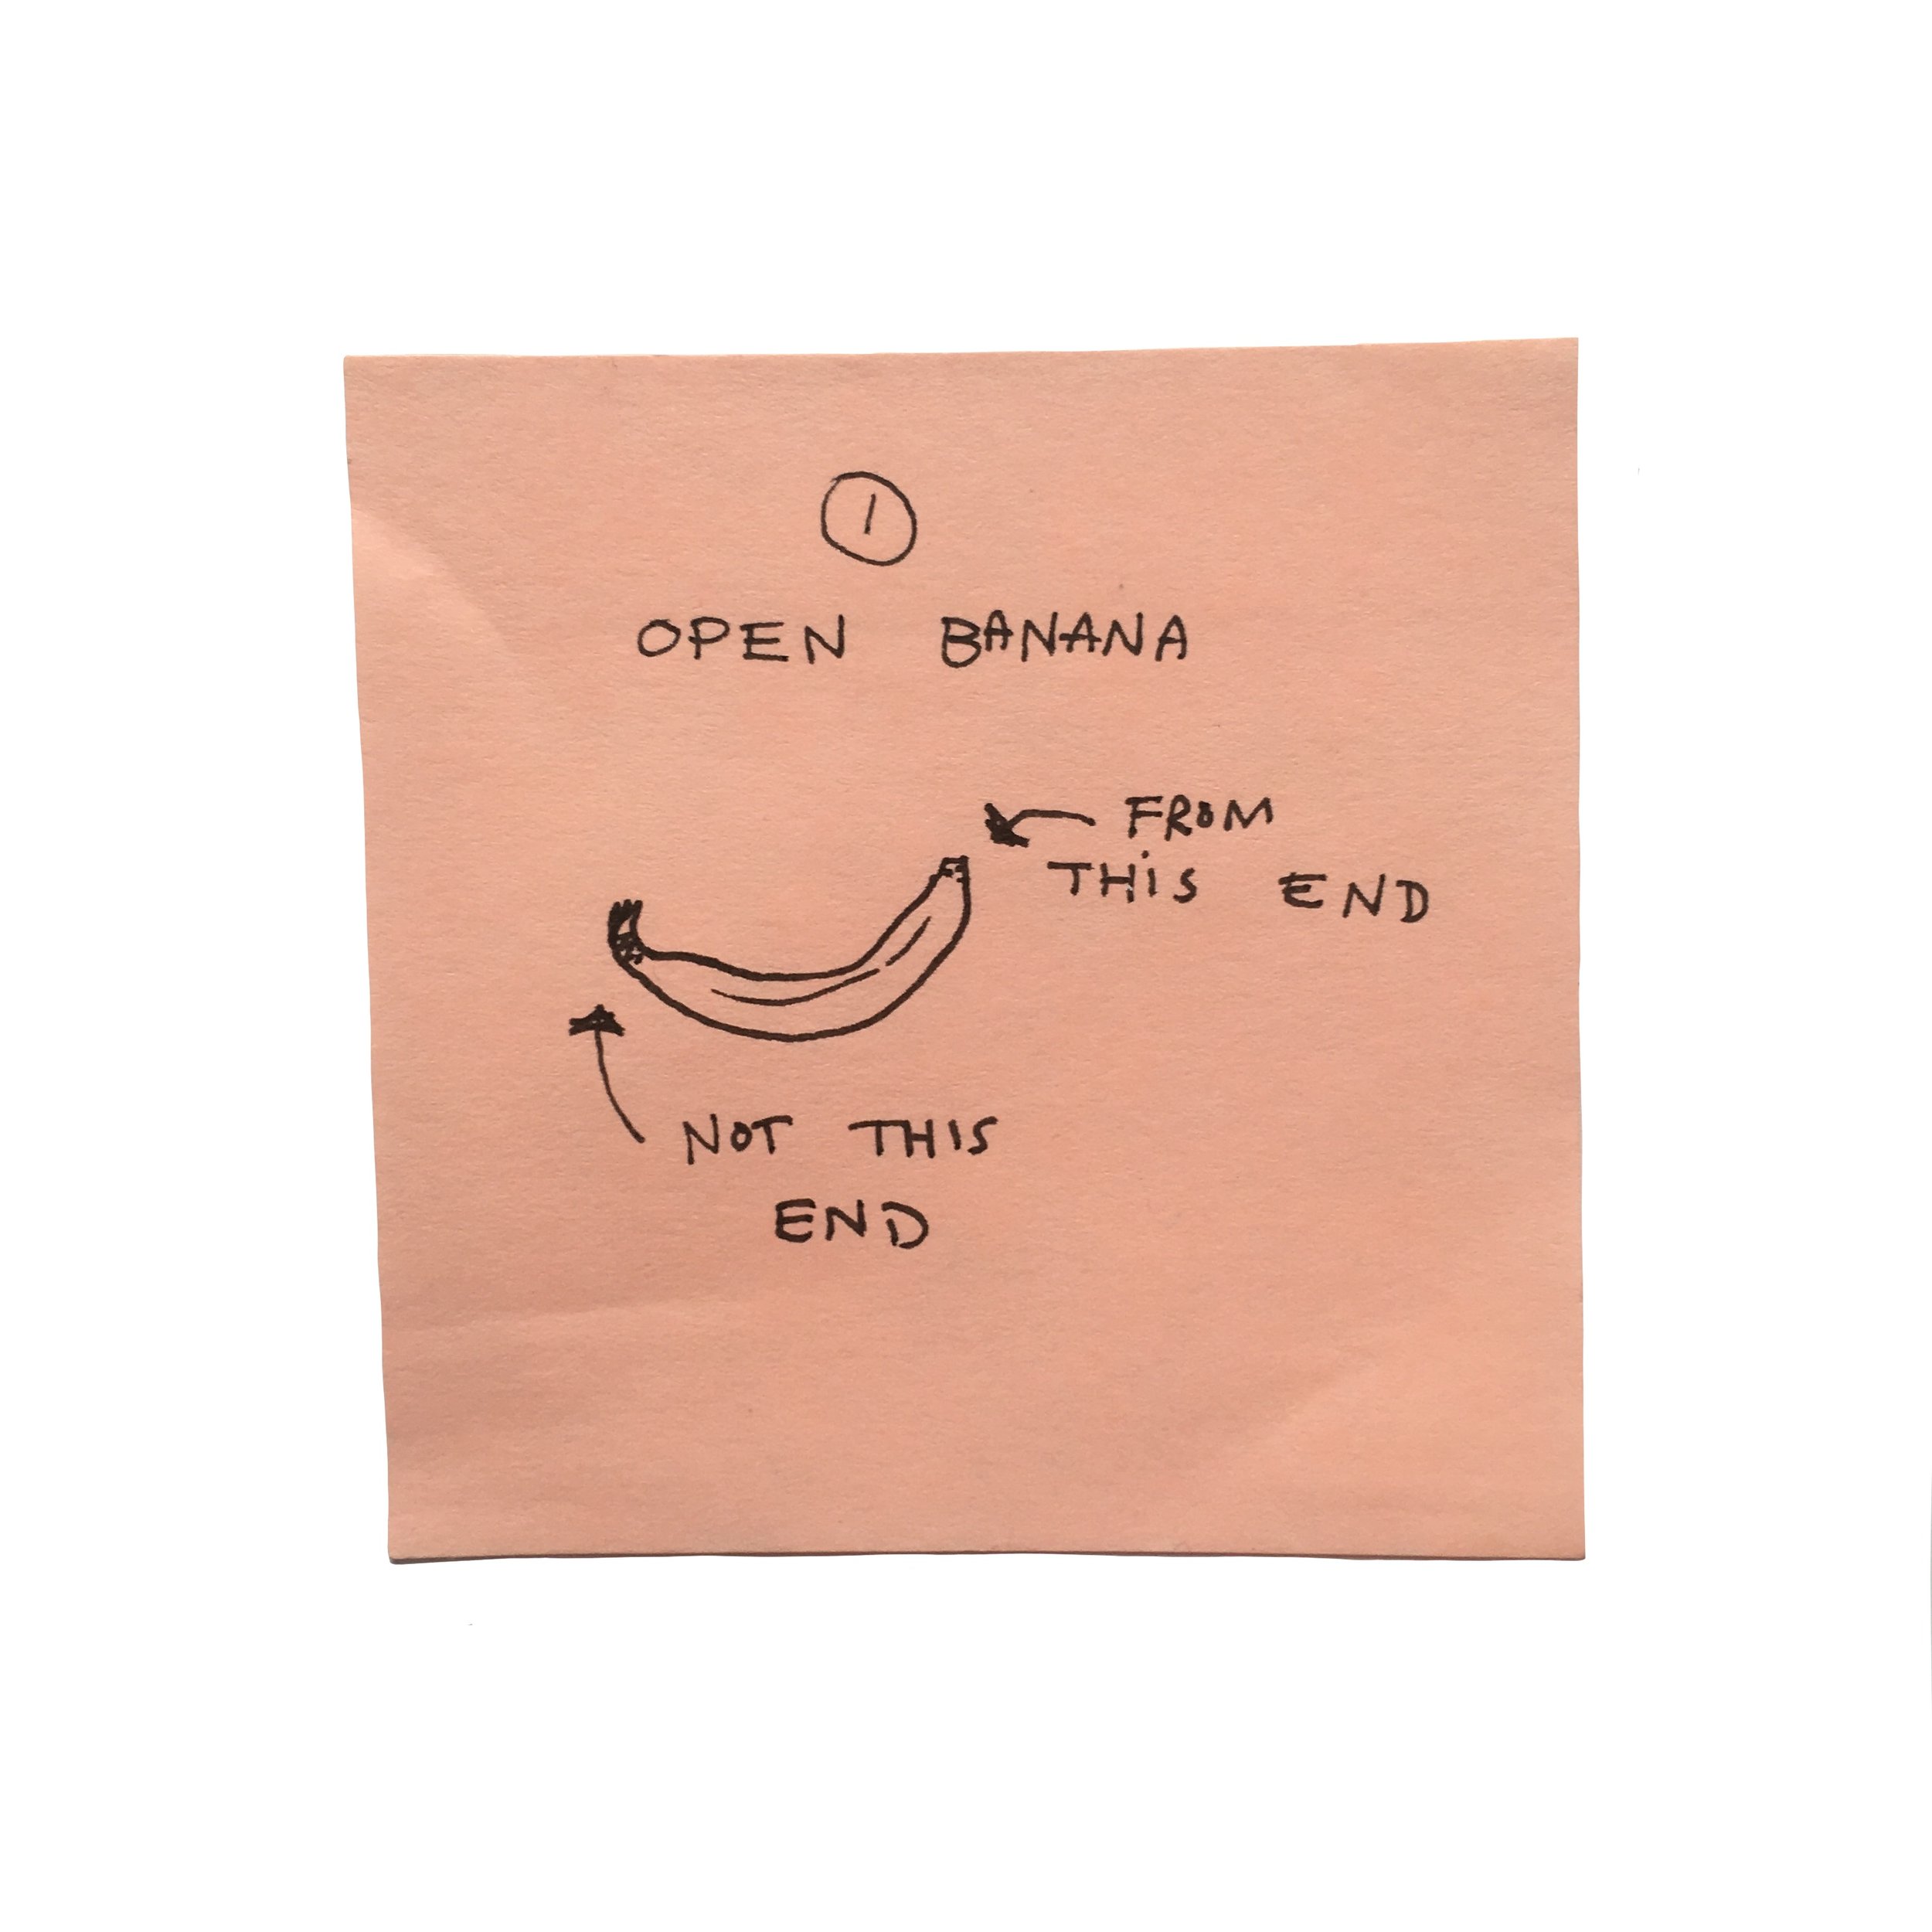 1
OPEN BANANA
FROM
THIS END
NOT THIS
END